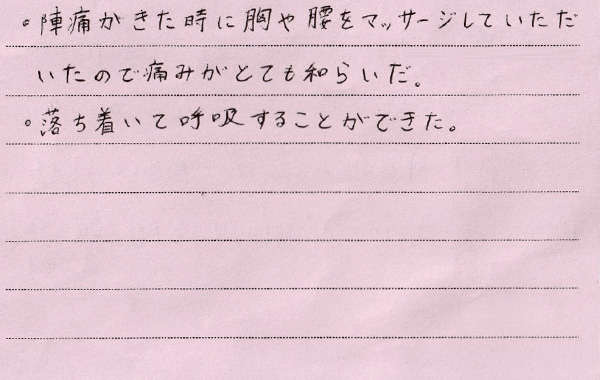 。陣痛がきた時に胸や腰をマッサージしていただ
いたので痛みがとても和らいだ。
。落ち着いて呼吸することができた。